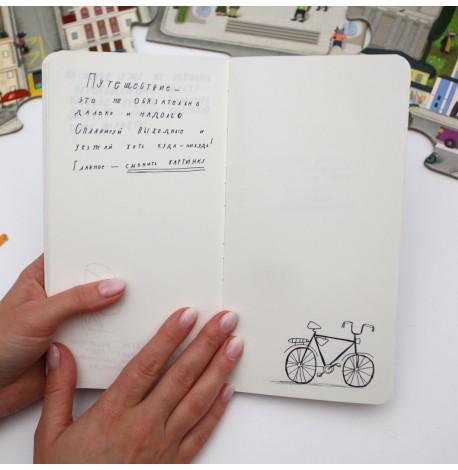 Путешествие —
это не обязательно
далеко и надолго
Спланируй выходные и
уезжай хоть куда-нибудь!
Главное — сменить картинку